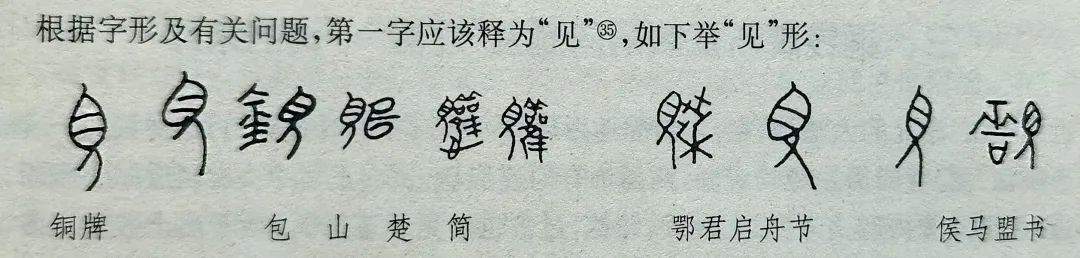 根据字形及有关问题，第一字应该释为“见”㉟，如下举“见”形：
铜牌 包山楚简 鄂君启舟节 侯马盟书